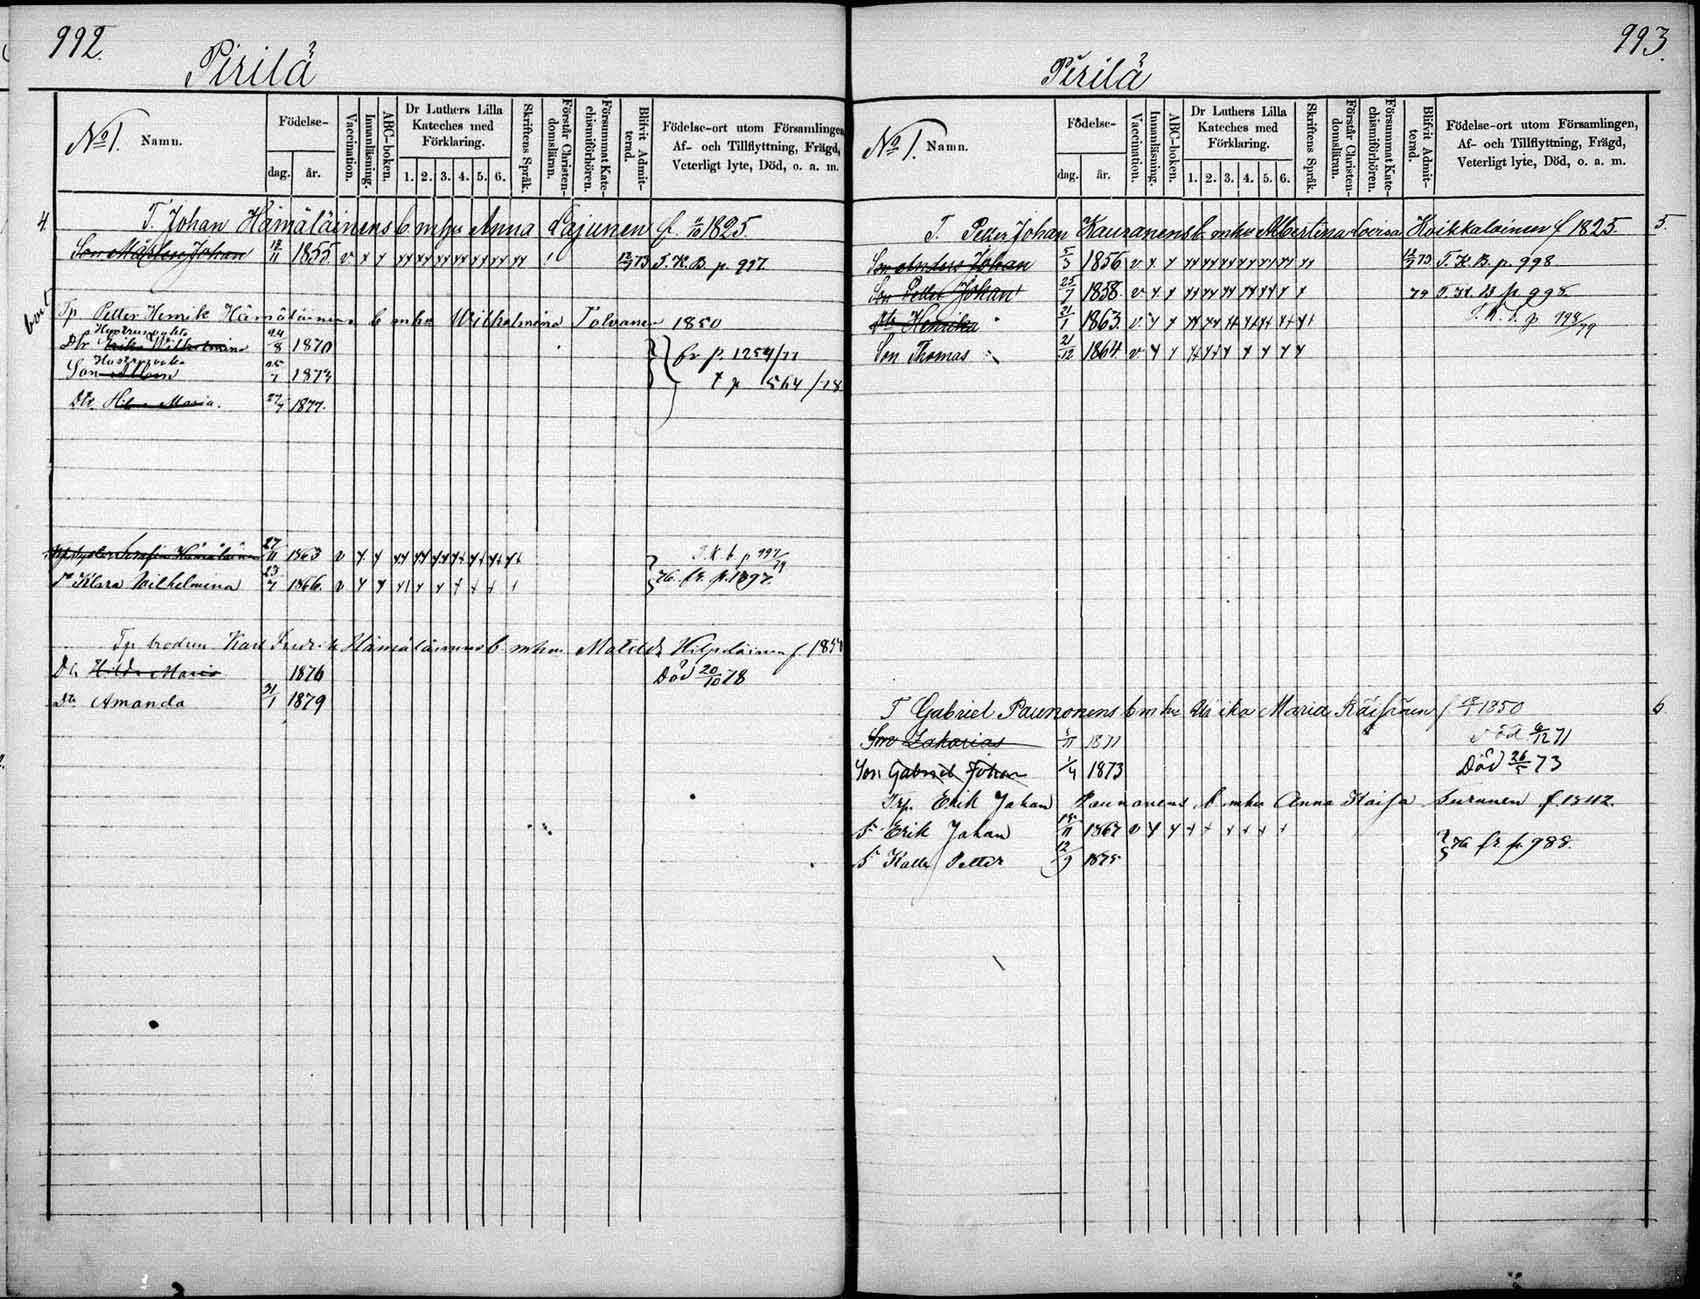 992.
Pirilä
No 1. Namn.
Födelse-
dag. år.
Vaccination.
Innanläsning.
ABC-boken.
Dr Luthers Lilla Kateches med Förklaring.
1. 2. 3. 4. 5. 6.
Skriftens Språk.
Förstår Christendomsläran.
Försummat Katechismiförhören.
Blifvit Admitterad.
Födelse-ort utom Församlingen, Af- och Tillflyttning, Frägd, Veterligt lyte, Död, o. a. m.
4 T. Johan Hämäläinens b mhu Anna Lajunen f. 1825.
Son Johan 18/11 1855. v T. K. B. p. 997.
Tp Petter Henrik Hämäläinens b mhu Wilhelmina Tolvanen 1850
Dtr Erika Wilhelmina 24/8 1870 fr p. 1254/77
Son Albin 25/7 1873 t p 564/78
Dtr. Maria. 1877.
Serafia Hämäläinen 27/11 1863 v T. k. b. p 997/79
Klara Wilhelmina 23/7 1866. v 76. fr. p. 1097.
Tp brodren Karl Fredrik Hämäläinens b. mhu Matilda Hilpoläinen f. 1850
Dtr Hilda Maria 1876 Död 20/10 78
Dtr Amanda 31/1 1879
993.
Pirilä
No 1. Namn.
Födelse-
dag. år.
Vaccination.
Innanläsning.
ABC-boken.
Dr Luthers Lilla Kateches med Förklaring.
1. 2. 3. 4. 5. 6.
Skriftens Språk.
Förstår Christendomsläran.
Försummat Katechismiförhören.
Blifvit Admitterad.
Födelse-ort utom Församlingen, Af- och Tillflyttning, Frägd, Veterligt lyte, Död, o. a. m.
T. Petter Johan Kauranens b. mhu Albertina Lovisa Koikkalainen f 1825. 5.
Son Anders Johan 5/5 1856 v T. K. B. p. 998
Son Petter Johan 25/7 1858. v 79 T. K. B p. 998.
Dtr Henrika 21/1 1863. v T. K. B. p 998/79
Son Thomas 21/12 1864. v
T Gabriel Paunonens b mhu Ulrika Maria Räisänen f 1850 6
Son Zakarias 1871 Död 71
Son Gabriel Johan 1/4 1873 Död 26/5 73
Trp. Erik Johan Paunonens b mhu Anna Kaisa Surunen f. 1842.
S. Erik Johan 1867 v
S. Kalle Petter 12/9 1875 76 fr p. 988.